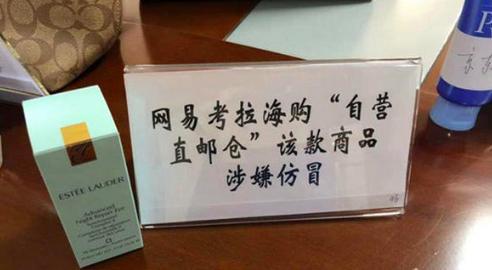 网易考拉海购“自营
直邮仓”该款商品
涉嫌仿冒
ESTĒE LAUDER
Advanced
Night Repair Eye
京东